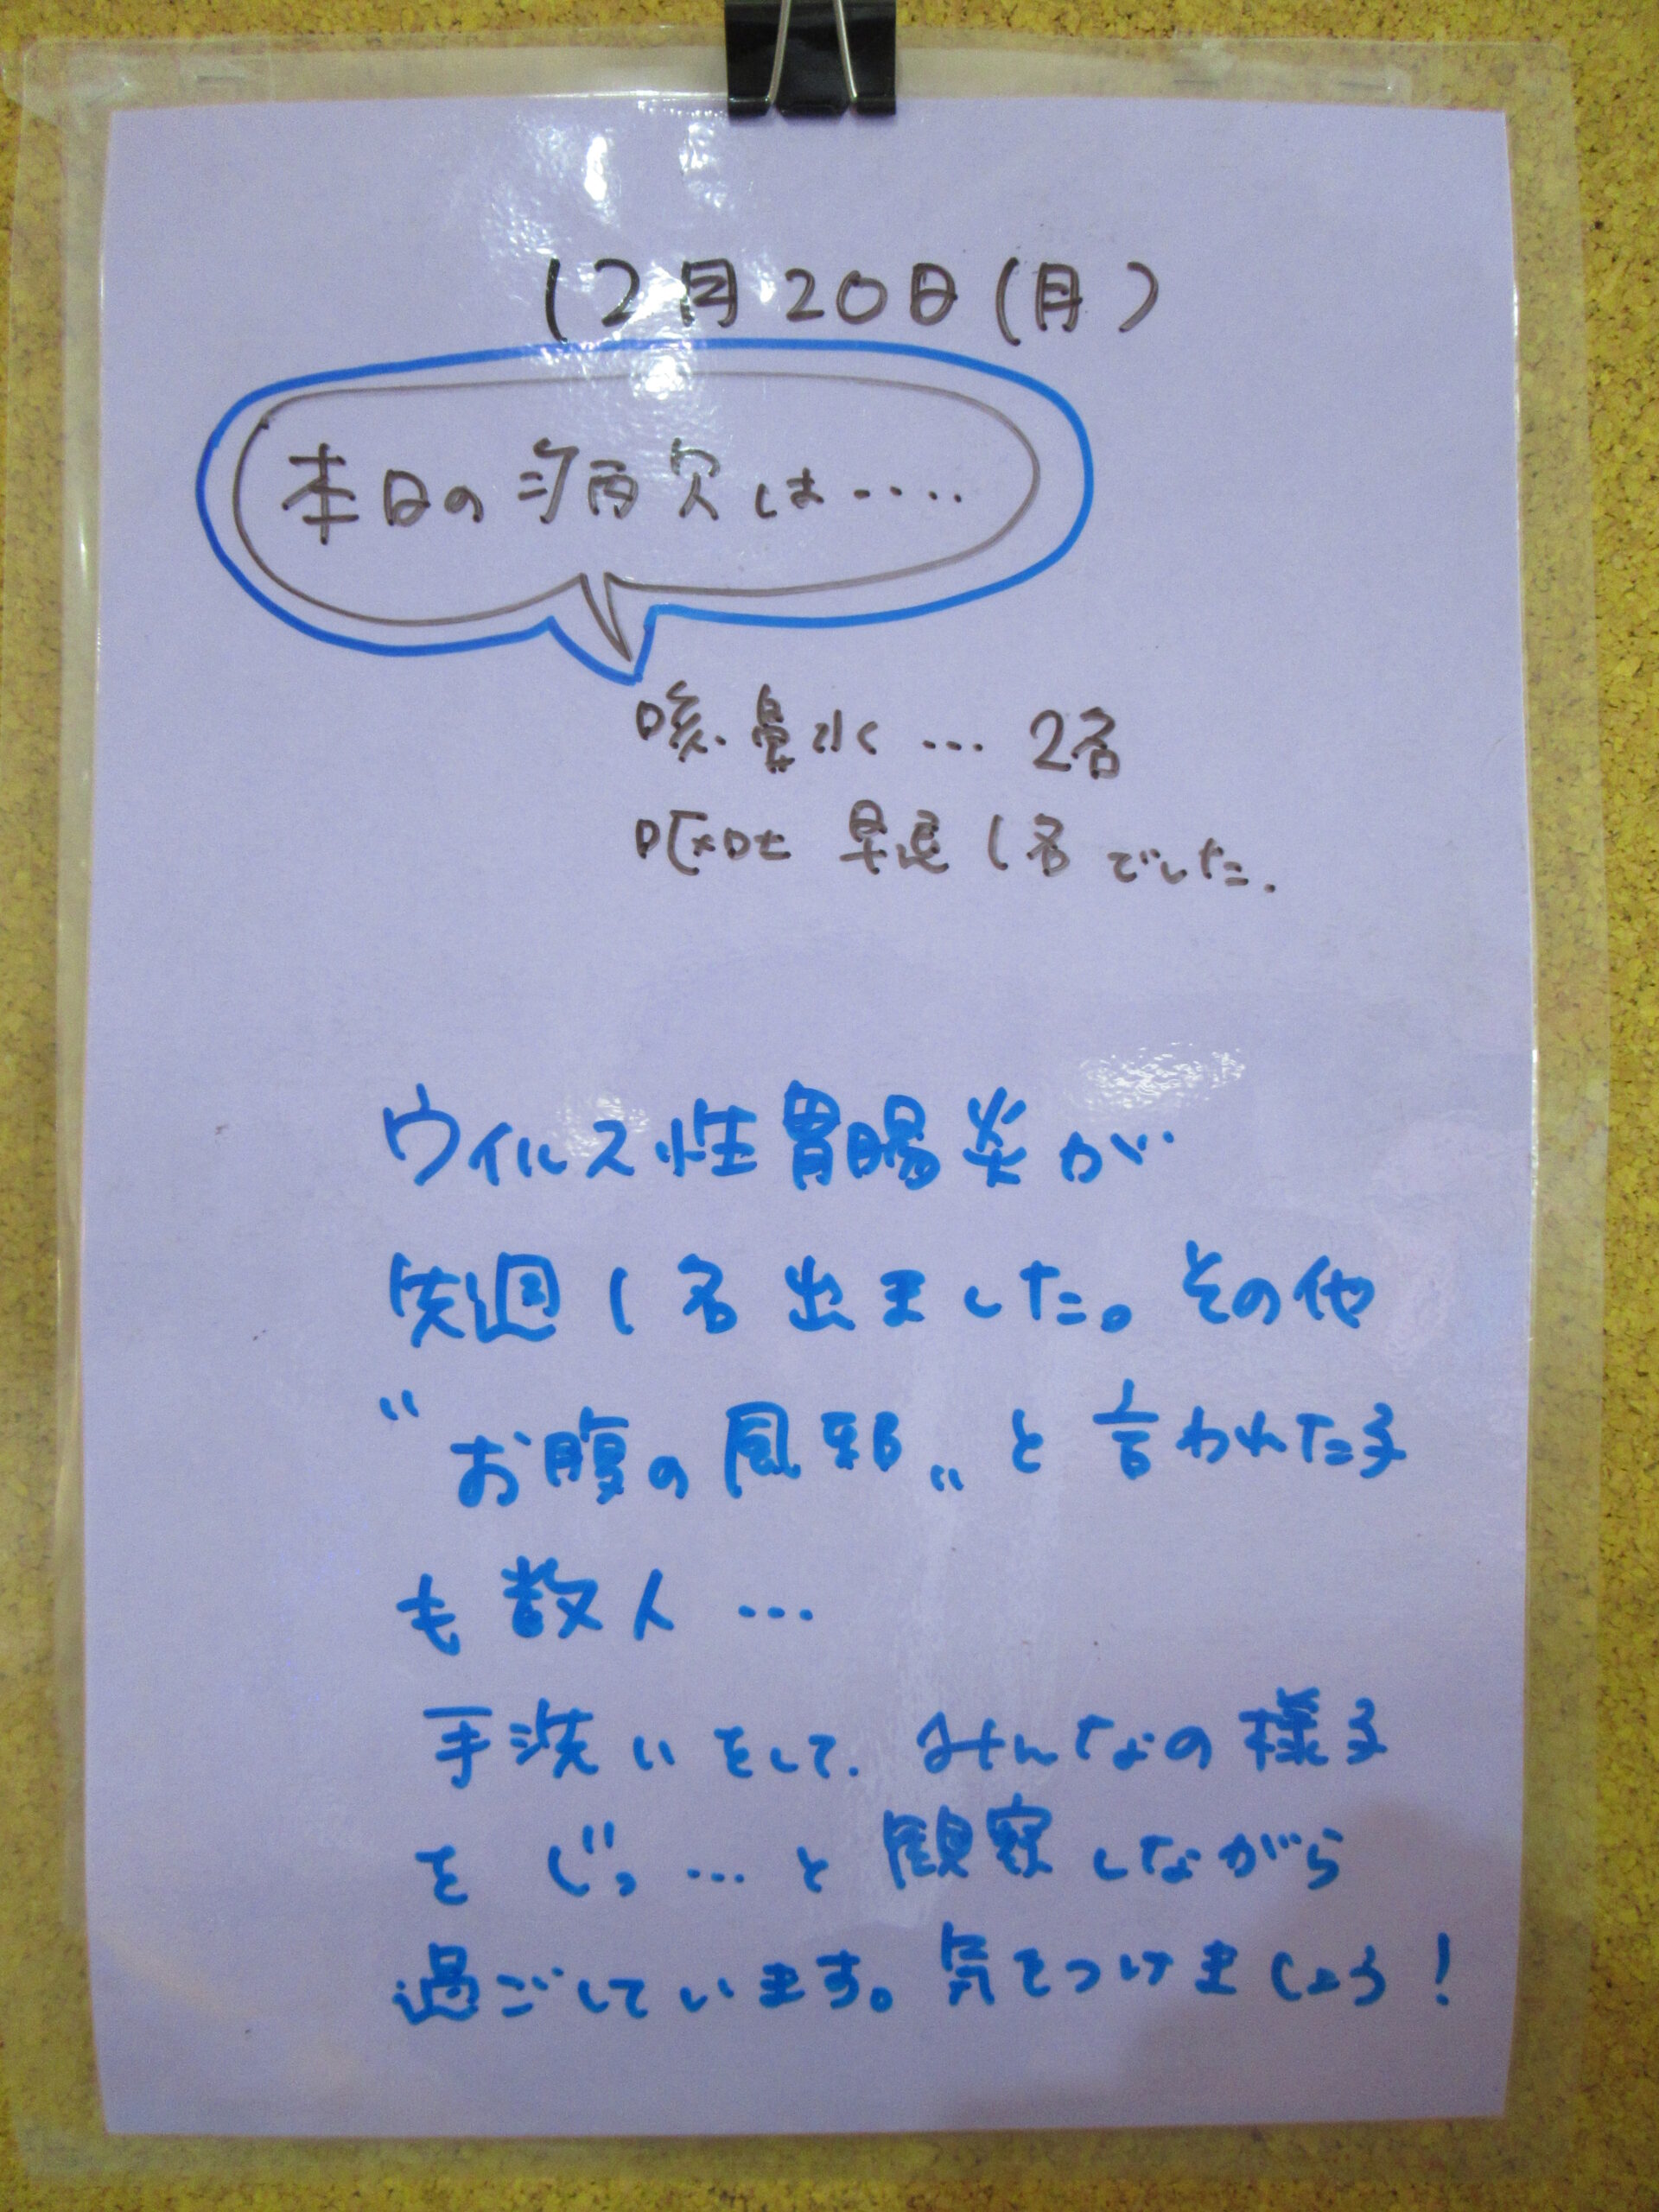 12月20日(月)
本日の病欠は‥‥‥
咳.鼻水 … 2名
嘔吐 早退 1名 でした.
ウイルス性胃腸炎が
先週1名出ました。その他
"お腹の風邪„と言われた子
も数人 …
手洗いをして. みんなの様子
を じっ…と観察しながら
過ごしています。気をつけましょう!